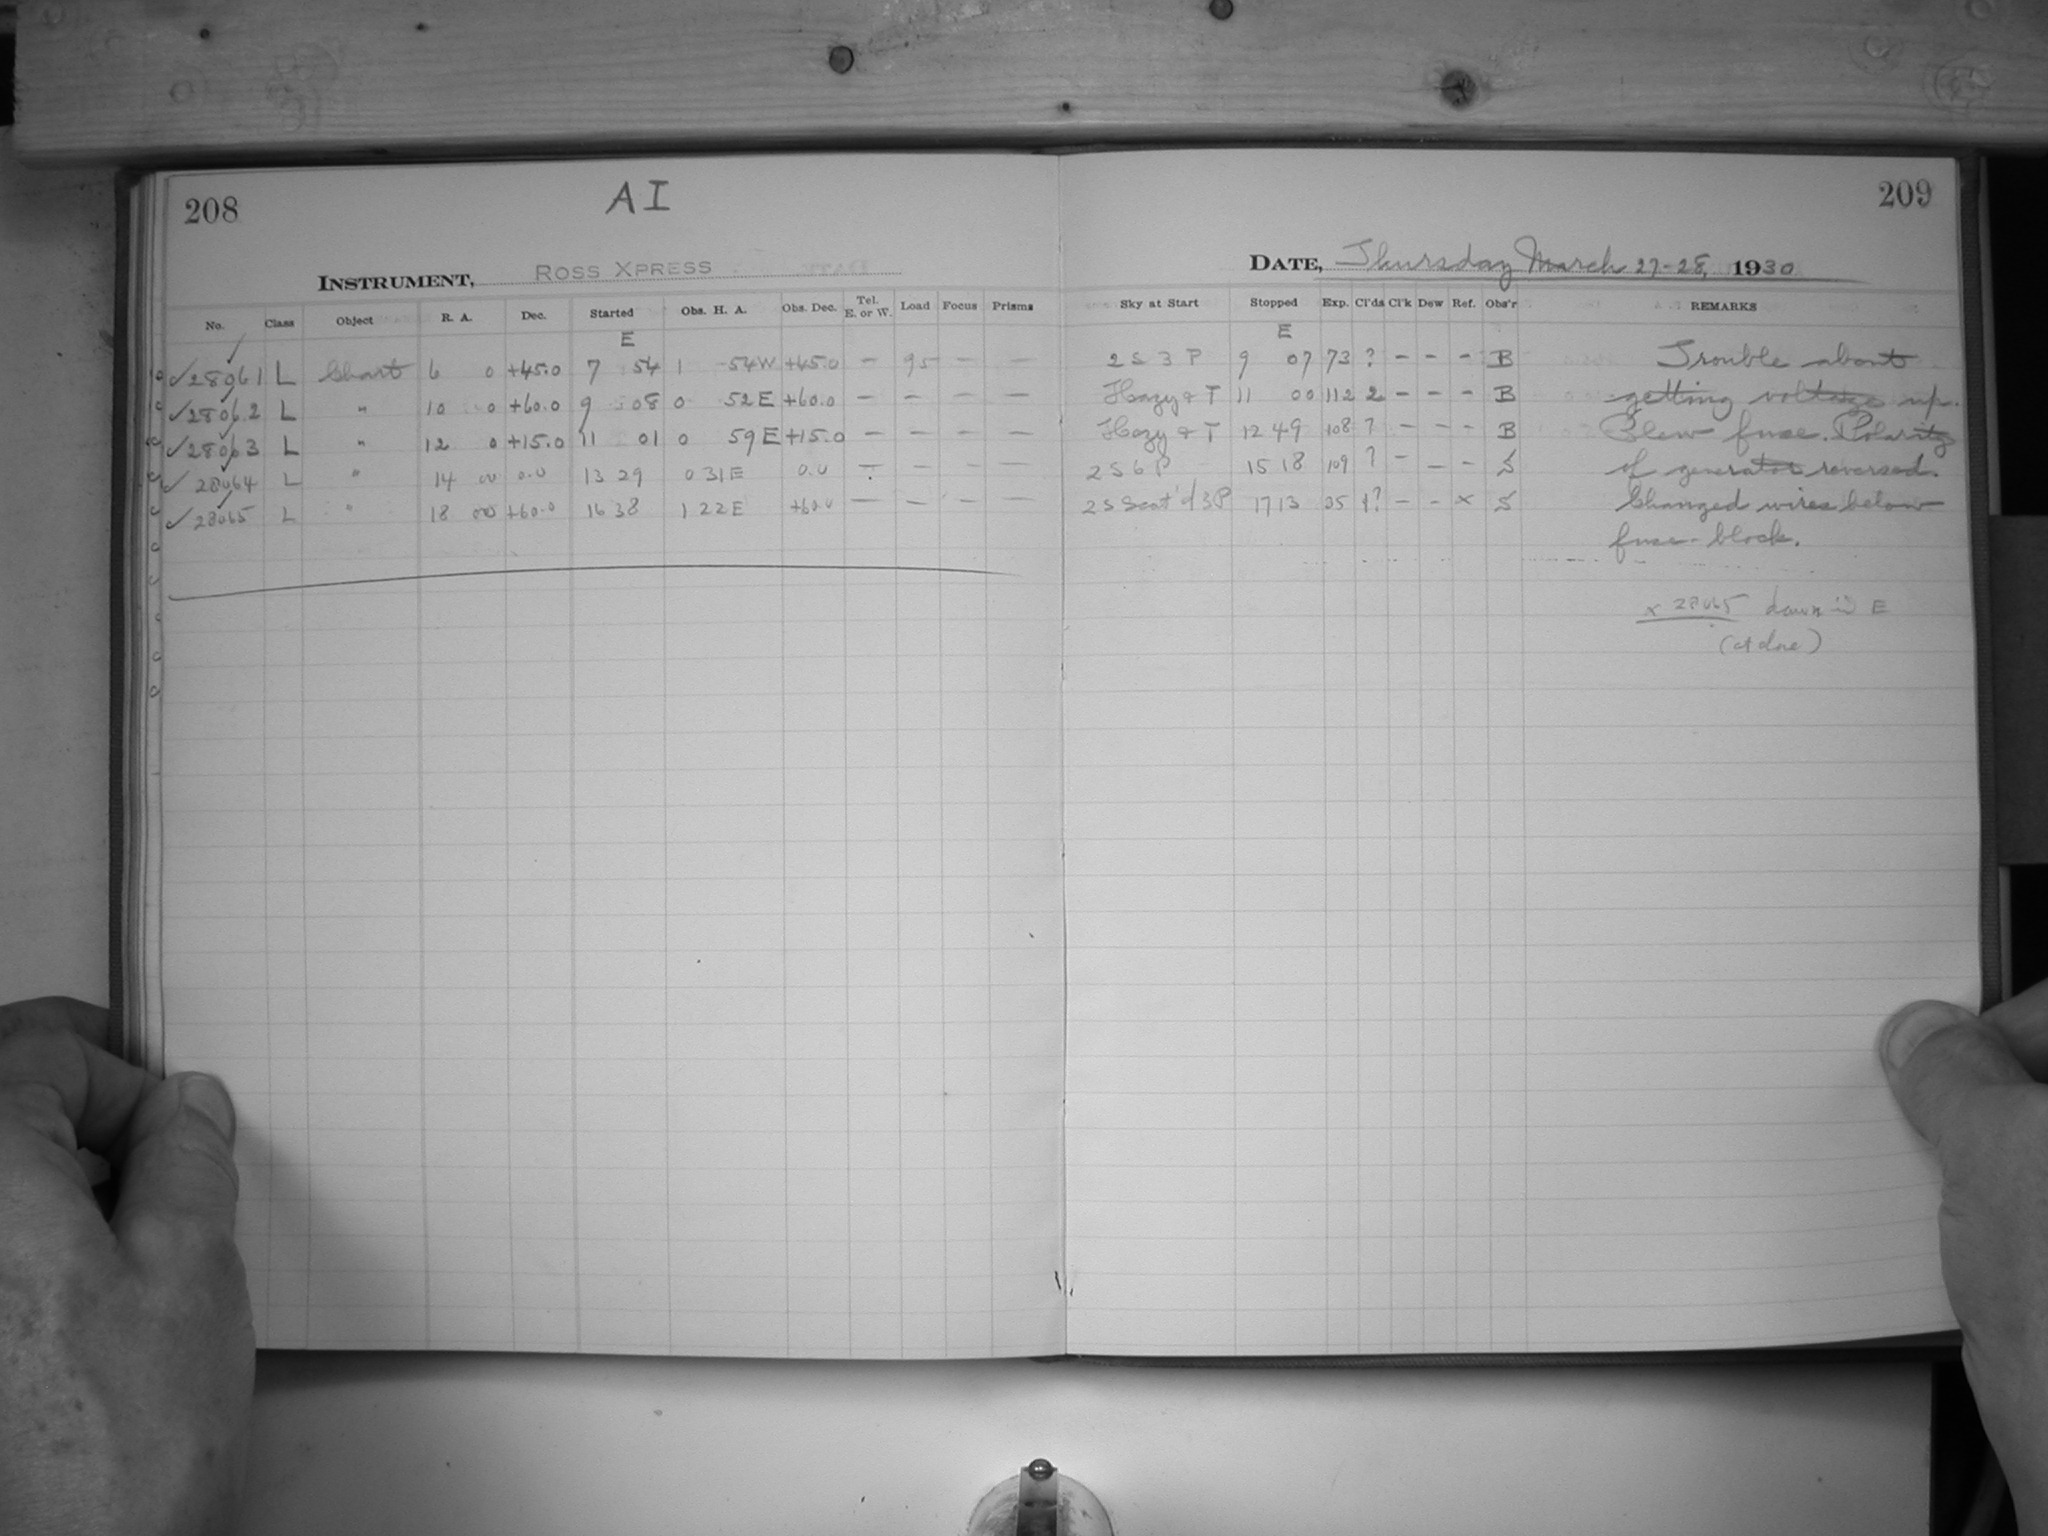 208
AI
INSTRUMENT, ROSS XPRESS
No. Class Object R. A. Dec. Started Obs. H. A. Obs. Dec. Tel. E. or W. Load Focus Prisms
E
✓28061 L Chart 6 0 +45.0 7 54 1 54W +45.0 – 95 – –
✓28062 L " 10 0 +60.0 9 08 0 52E +60.0 – – – –
✓28063 L " 12 0 +15.0 11 01 0 59E +15.0 – – – –
✓28064 L " 14 00 0.0 13 29 0 31E 0.0 – – – –
✓28065 L " 18 00 +60.0 16 38 1 22E +60.0 – – – –
209
DATE, Thursday March 27-28, 1930
Sky at Start Stopped Exp. Cl'ds Cl'k Dew Ref. Obs'r REMARKS
E
2 S 3 P 9 07 73 ? – – – B Trouble about
Hazy & T 11 00 112 2 – – – B getting voltage up.
Hazy & T 12 49 108 ? – – – B Blew fuse. Polarity
2 S 6 P 15 18 109 ? – – – S of generator reversed.
2 S Scat'd 3P 17 13 35 1? – – x S Changed wires below
fuse-block.
x 28065 dawn in E
(at close)